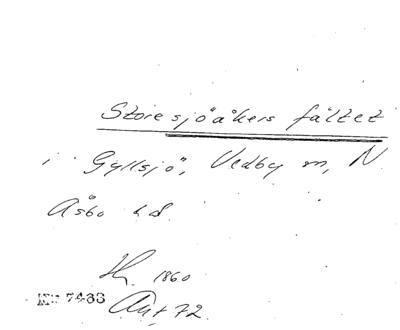 Storesjöåkers fältet
i Gyllsjö, Vedby m, N
Åsbo hd.
1860
7483
Ant, 72.